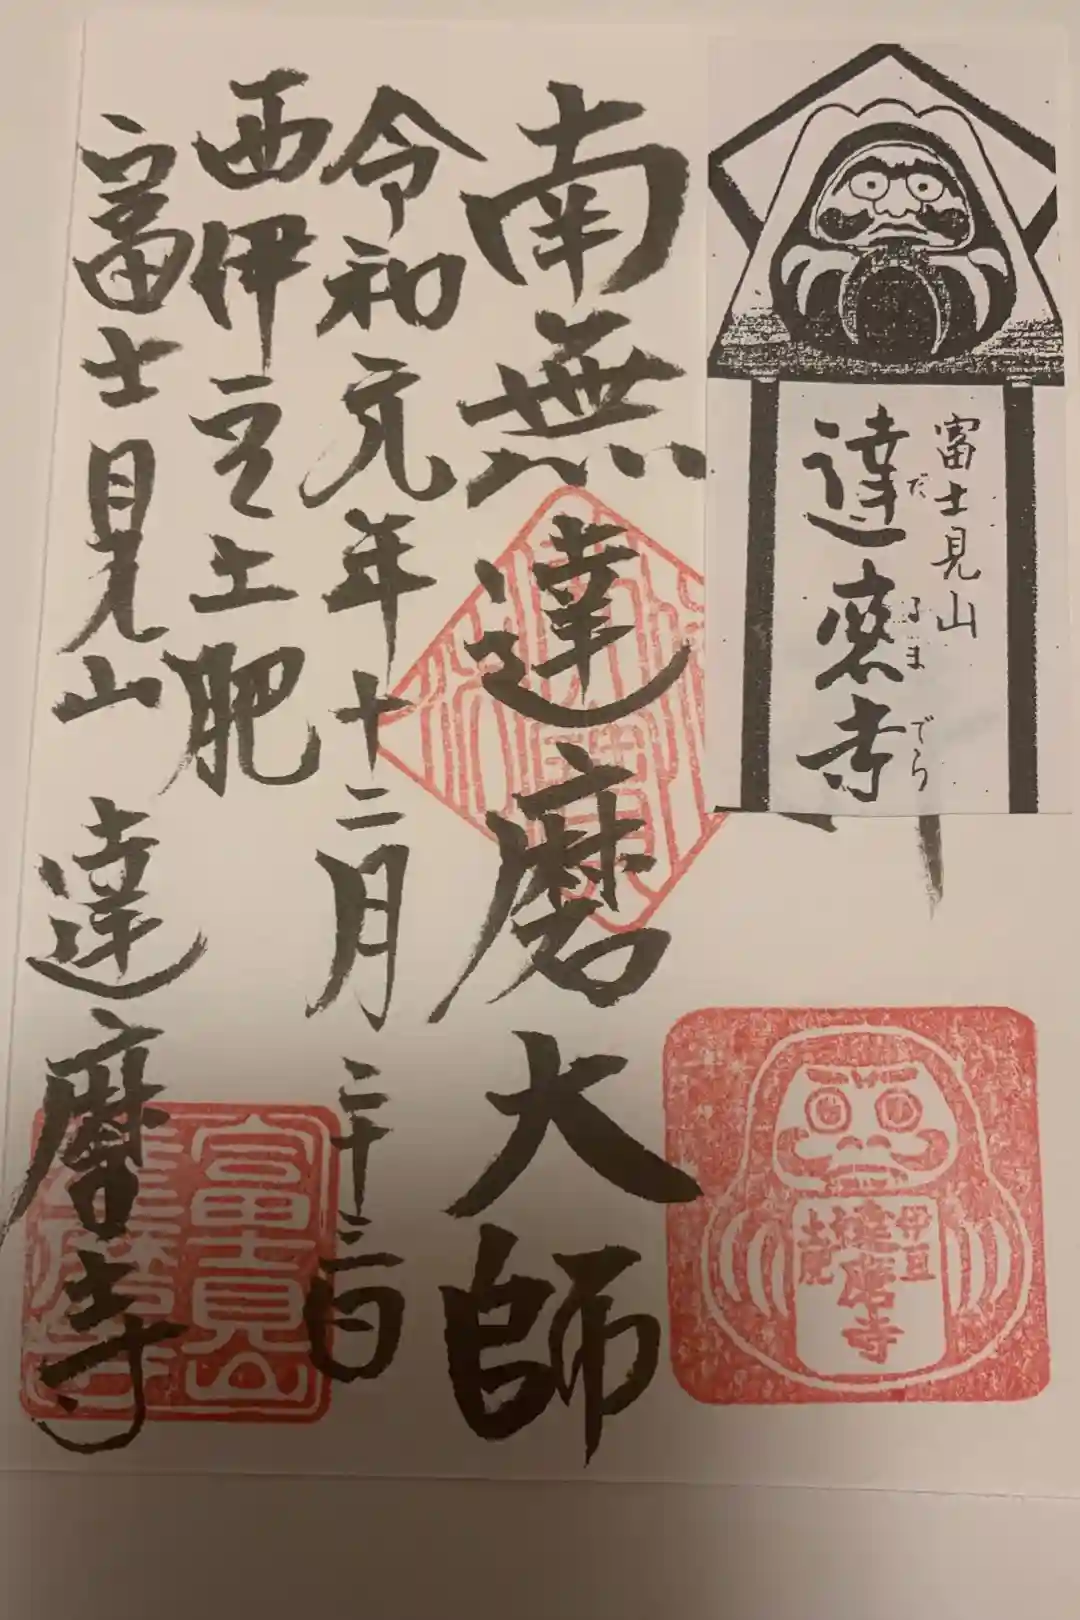 富士見山
達磨寺
だるまでら
南無達磨大師
令和元年十二月二十三日
西伊豆土肥
富士見山 達磨寺
伊豆
達磨寺
土肥
富士見山
達磨寺